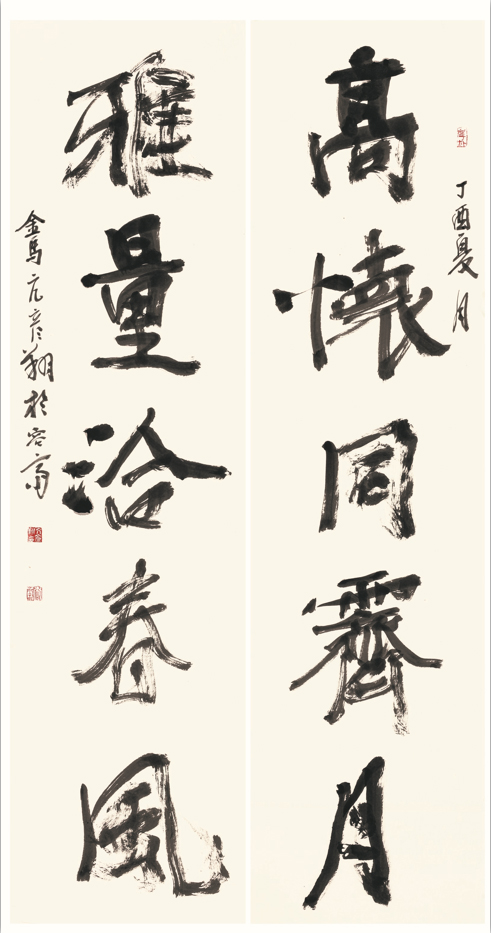 丁酉夏月
高懷同霽月
雅量洽春風
金馬亢彦翔於容齋